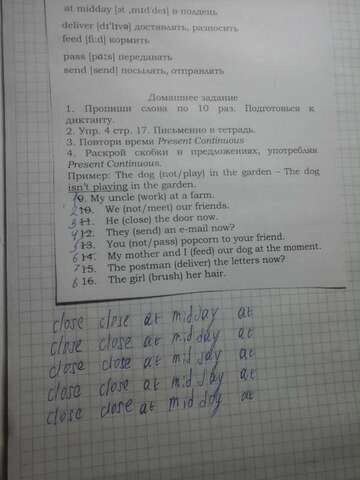 at midday [ət ˌmɪdˈdeɪ] в полдень
deliver [dɪˈlɪvə] доставлять, разносить
feed [fi:d] кормить
pass [pɑ:s] передавать
send [send] посылать, отправлять
Домашнее задание
1. Пропиши слова по 10 раз. Подготовься к
диктанту.
2. Упр. 4 стр. 17. Письменно в тетрадь.
3. Повтори время Present Continuous
4. Раскрой скобки в предложениях, употребляя
Present Continuous.
Пример: The dog (not/play) in the garden – The dog
isn't playing in the garden.
1 9. My uncle (work) at a farm.
2 10. We (not/meet) our friends.
3 11. He (close) the door now.
4 12. They (send) an e-mail now?
5 13. You (not/pass) popcorn to your friend.
6 14. My mother and I (feed) our dog at the moment.
7 15. The postman (deliver) the letters now?
8 16. The girl (brush) her hair.
close close at midday at
close close at midday at
close close at midday at
close close at midday at
close close at midday at